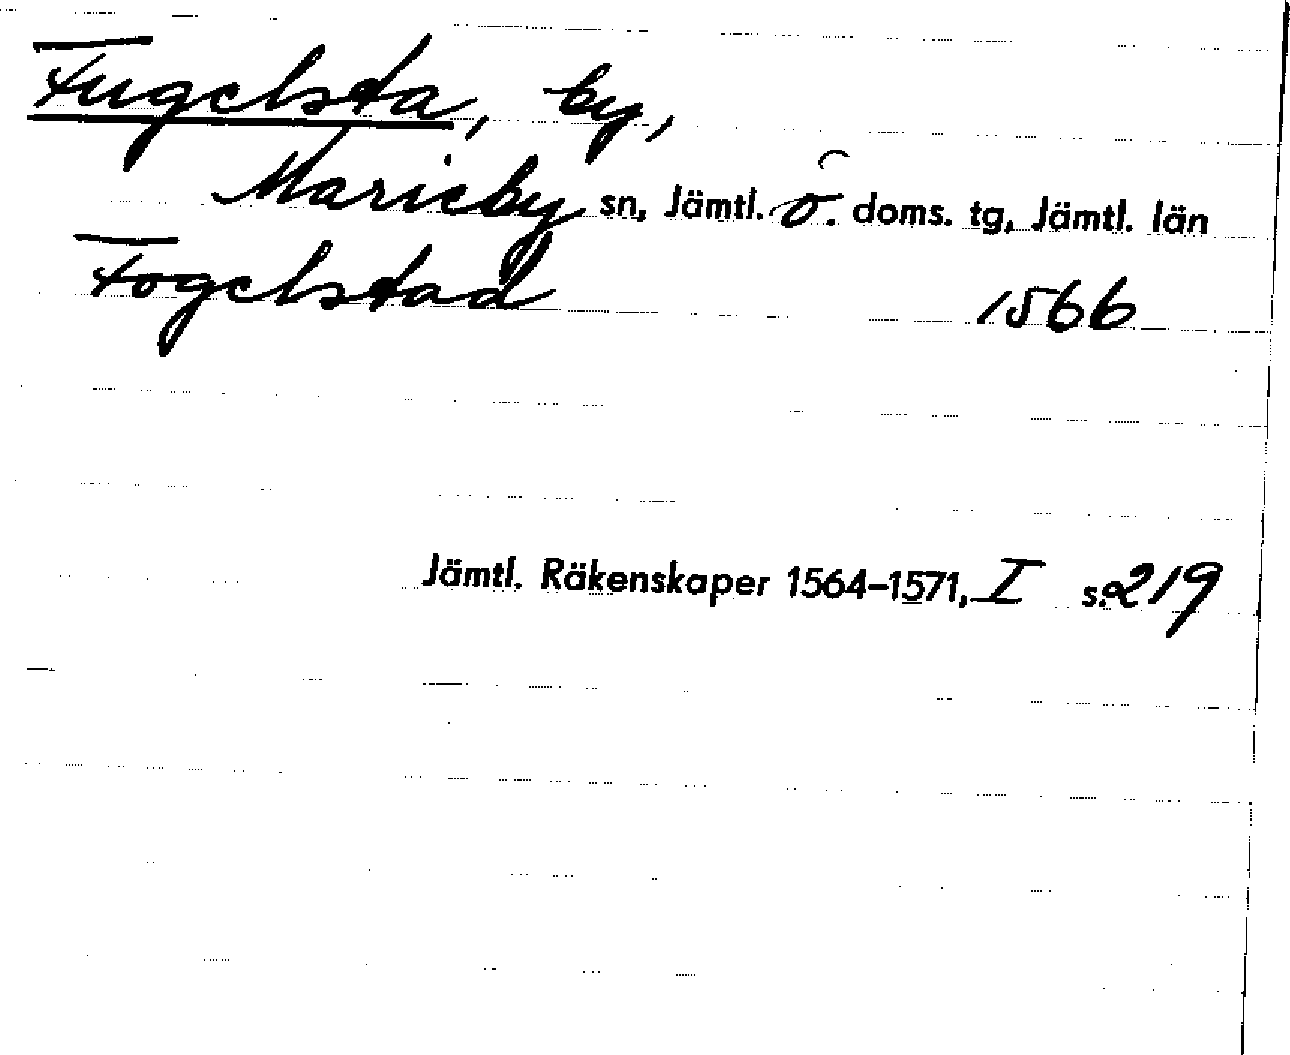 Fugelsta, by,
Marieby sn, Jämtl. ö. doms. tg, Jämtl. län
Fogelstad 1566
Jämtl. Räkenskaper 1564–1571, I s. 219